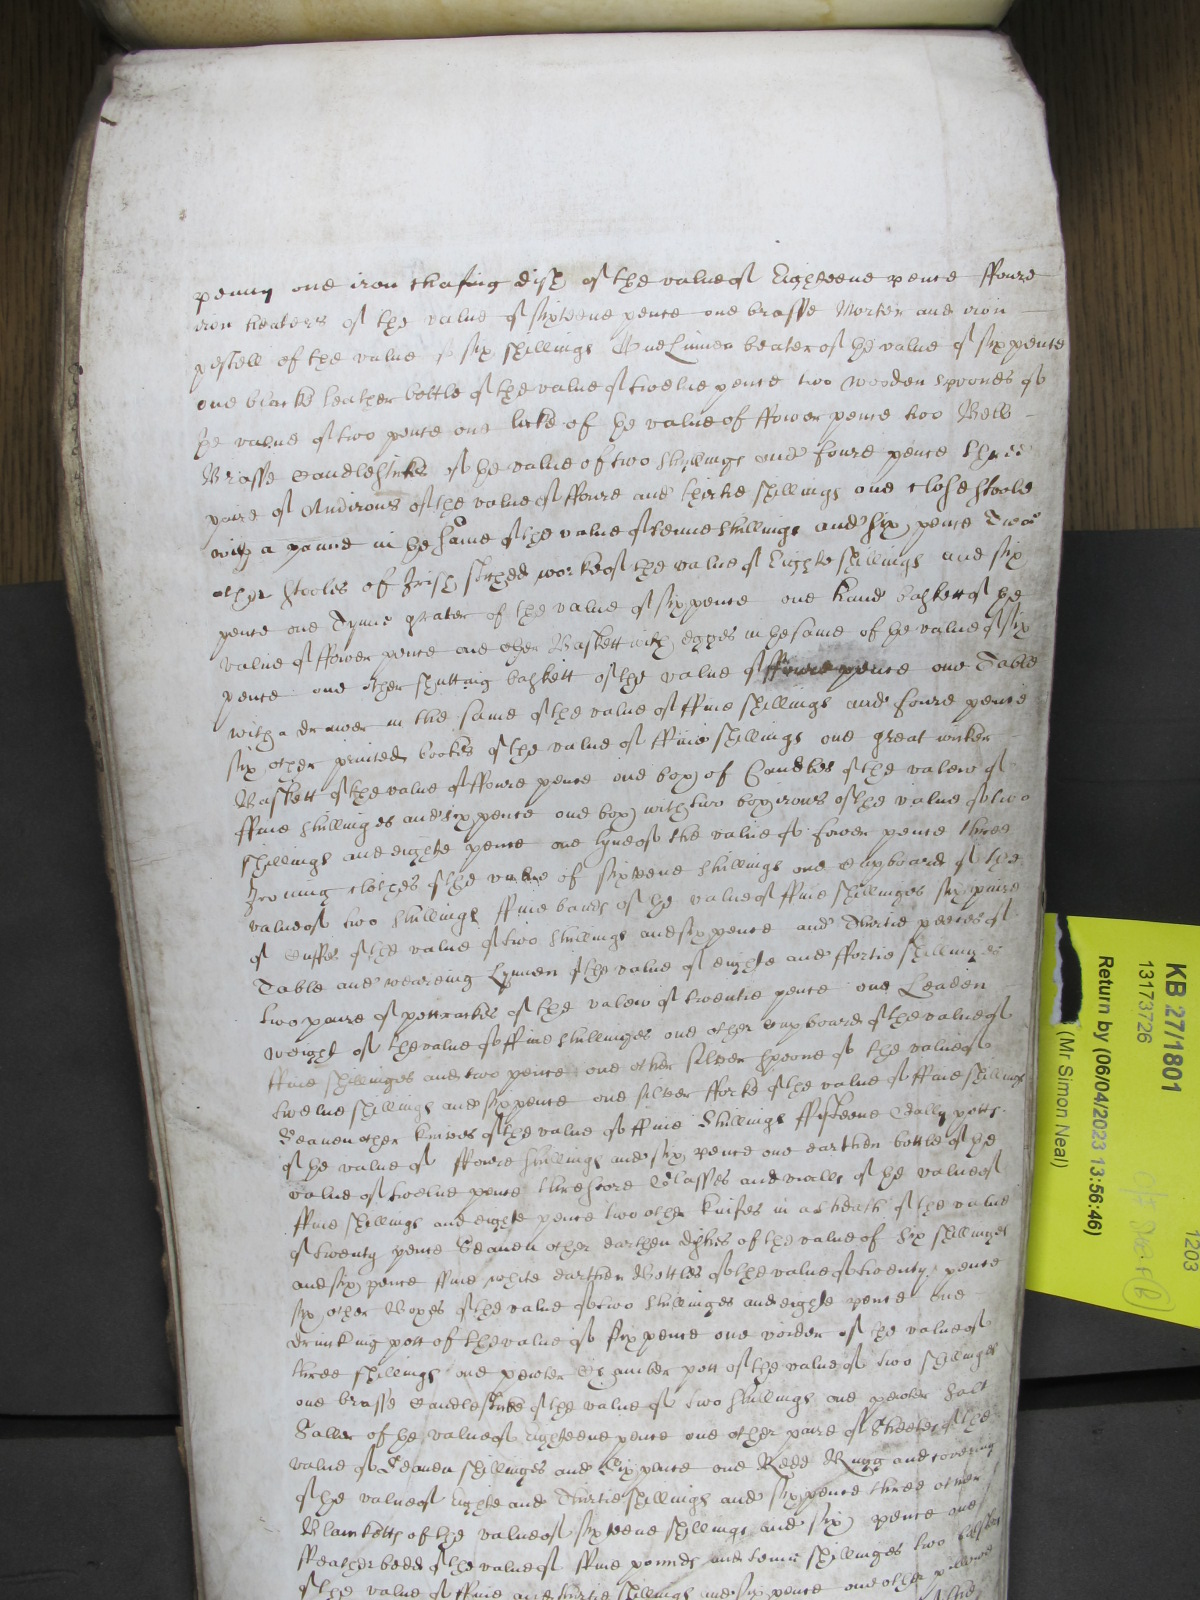 penny one iron chafing dish of the value of Eighteene pence ffoure
iron heaters of the value of sixteene pence one brasse Morter and iron
pestell of the value of six shillings One Linnen beater of the value of six pence
one blacke leather bottle of the value of twelve pence two wooden spoones of
the value of two pence one locke of the value of ffower pence two
Brasse Candlestickes of the value of two shillings and foure pence three
paire of Andirons of the value of ffoure and thirtie shillings one close stoole
with a panne in the same of the value of tenne shillings and six pence Two
other stooles of Irish stitched worke of the value of Eight shillings and six
pence one Tynne grater of the value of six pence one hand baskett of the
value of ffower pence one other Baskett with egges in the same of the value of six
pence one other shutting baskett of the value of ffoure pence one Table
with a drawer in the same of the value of ffive shillings and foure pence
six other printed bookes of the value of ffive shillings one great wicker
Baskett of the value of ffoure pence one box of Candles of the valew of
ffive shillinges and six pence one box with two box irons of the value of two
shillings and eight pence one lyne of the value of fower pence three
Ironing clothes of the value of sixteene shillings one Cupboard of the
value of two shillings ffive bands of the value of ffive shillinges six paire
of Cuffes of the value of two shillings and six pence and Thirtie peeces of
Table and weareing Lynnen of the value of eight and ffortie shillinges
two paire of pottrackes of the valew of twentie pence one Leaden
weight of the value of ffive shillinges one other Cupboard of the value of
ffive shillinges and two pence one other silver spoone of the value of
twelve shillings and six pence one silver fforke of the value of ffive shillings
Seaven other knives of the value of ffive Shillings ffifteene Gally potts
of the value of ffoure shillings and six pence one earthen bottle of the
value of twelve pence threscore Glasses and vialls of the value of
ffive shillings and eight pence two other knifes in a sheath of the value
of twenty pence Seaven other earthen dishes of the value of six shillinges
and six pence ffive white earthen Bottles of the value of twenty pence
six other Boxes of the value of two shillinges and eight pence one
drinking pott of the value of six pence one voider of the value of
three shillings one pewter Chamber pott of the value of two shillings
one brasse Candlesticke of the value of two shillings one pewter Salt
Seller of the value of Eighteene pence one other paire of Sheetes of the
value of Seaven shillinges and Six pence one Redd Rugg and covering
of the value of Eight and Thirtie shillings and six pence three other
Blanketts of the value of sixteene shillings and six pence one
ffeather bedd of the value of ffive pounds and tenne shillinges two
of the value of ffive and thirtie shillings and six pence one other pillowe
KB 27/1801
13173726
Return by (06/04/2023 13:56:46)
(Mr Simon Neal)
1203